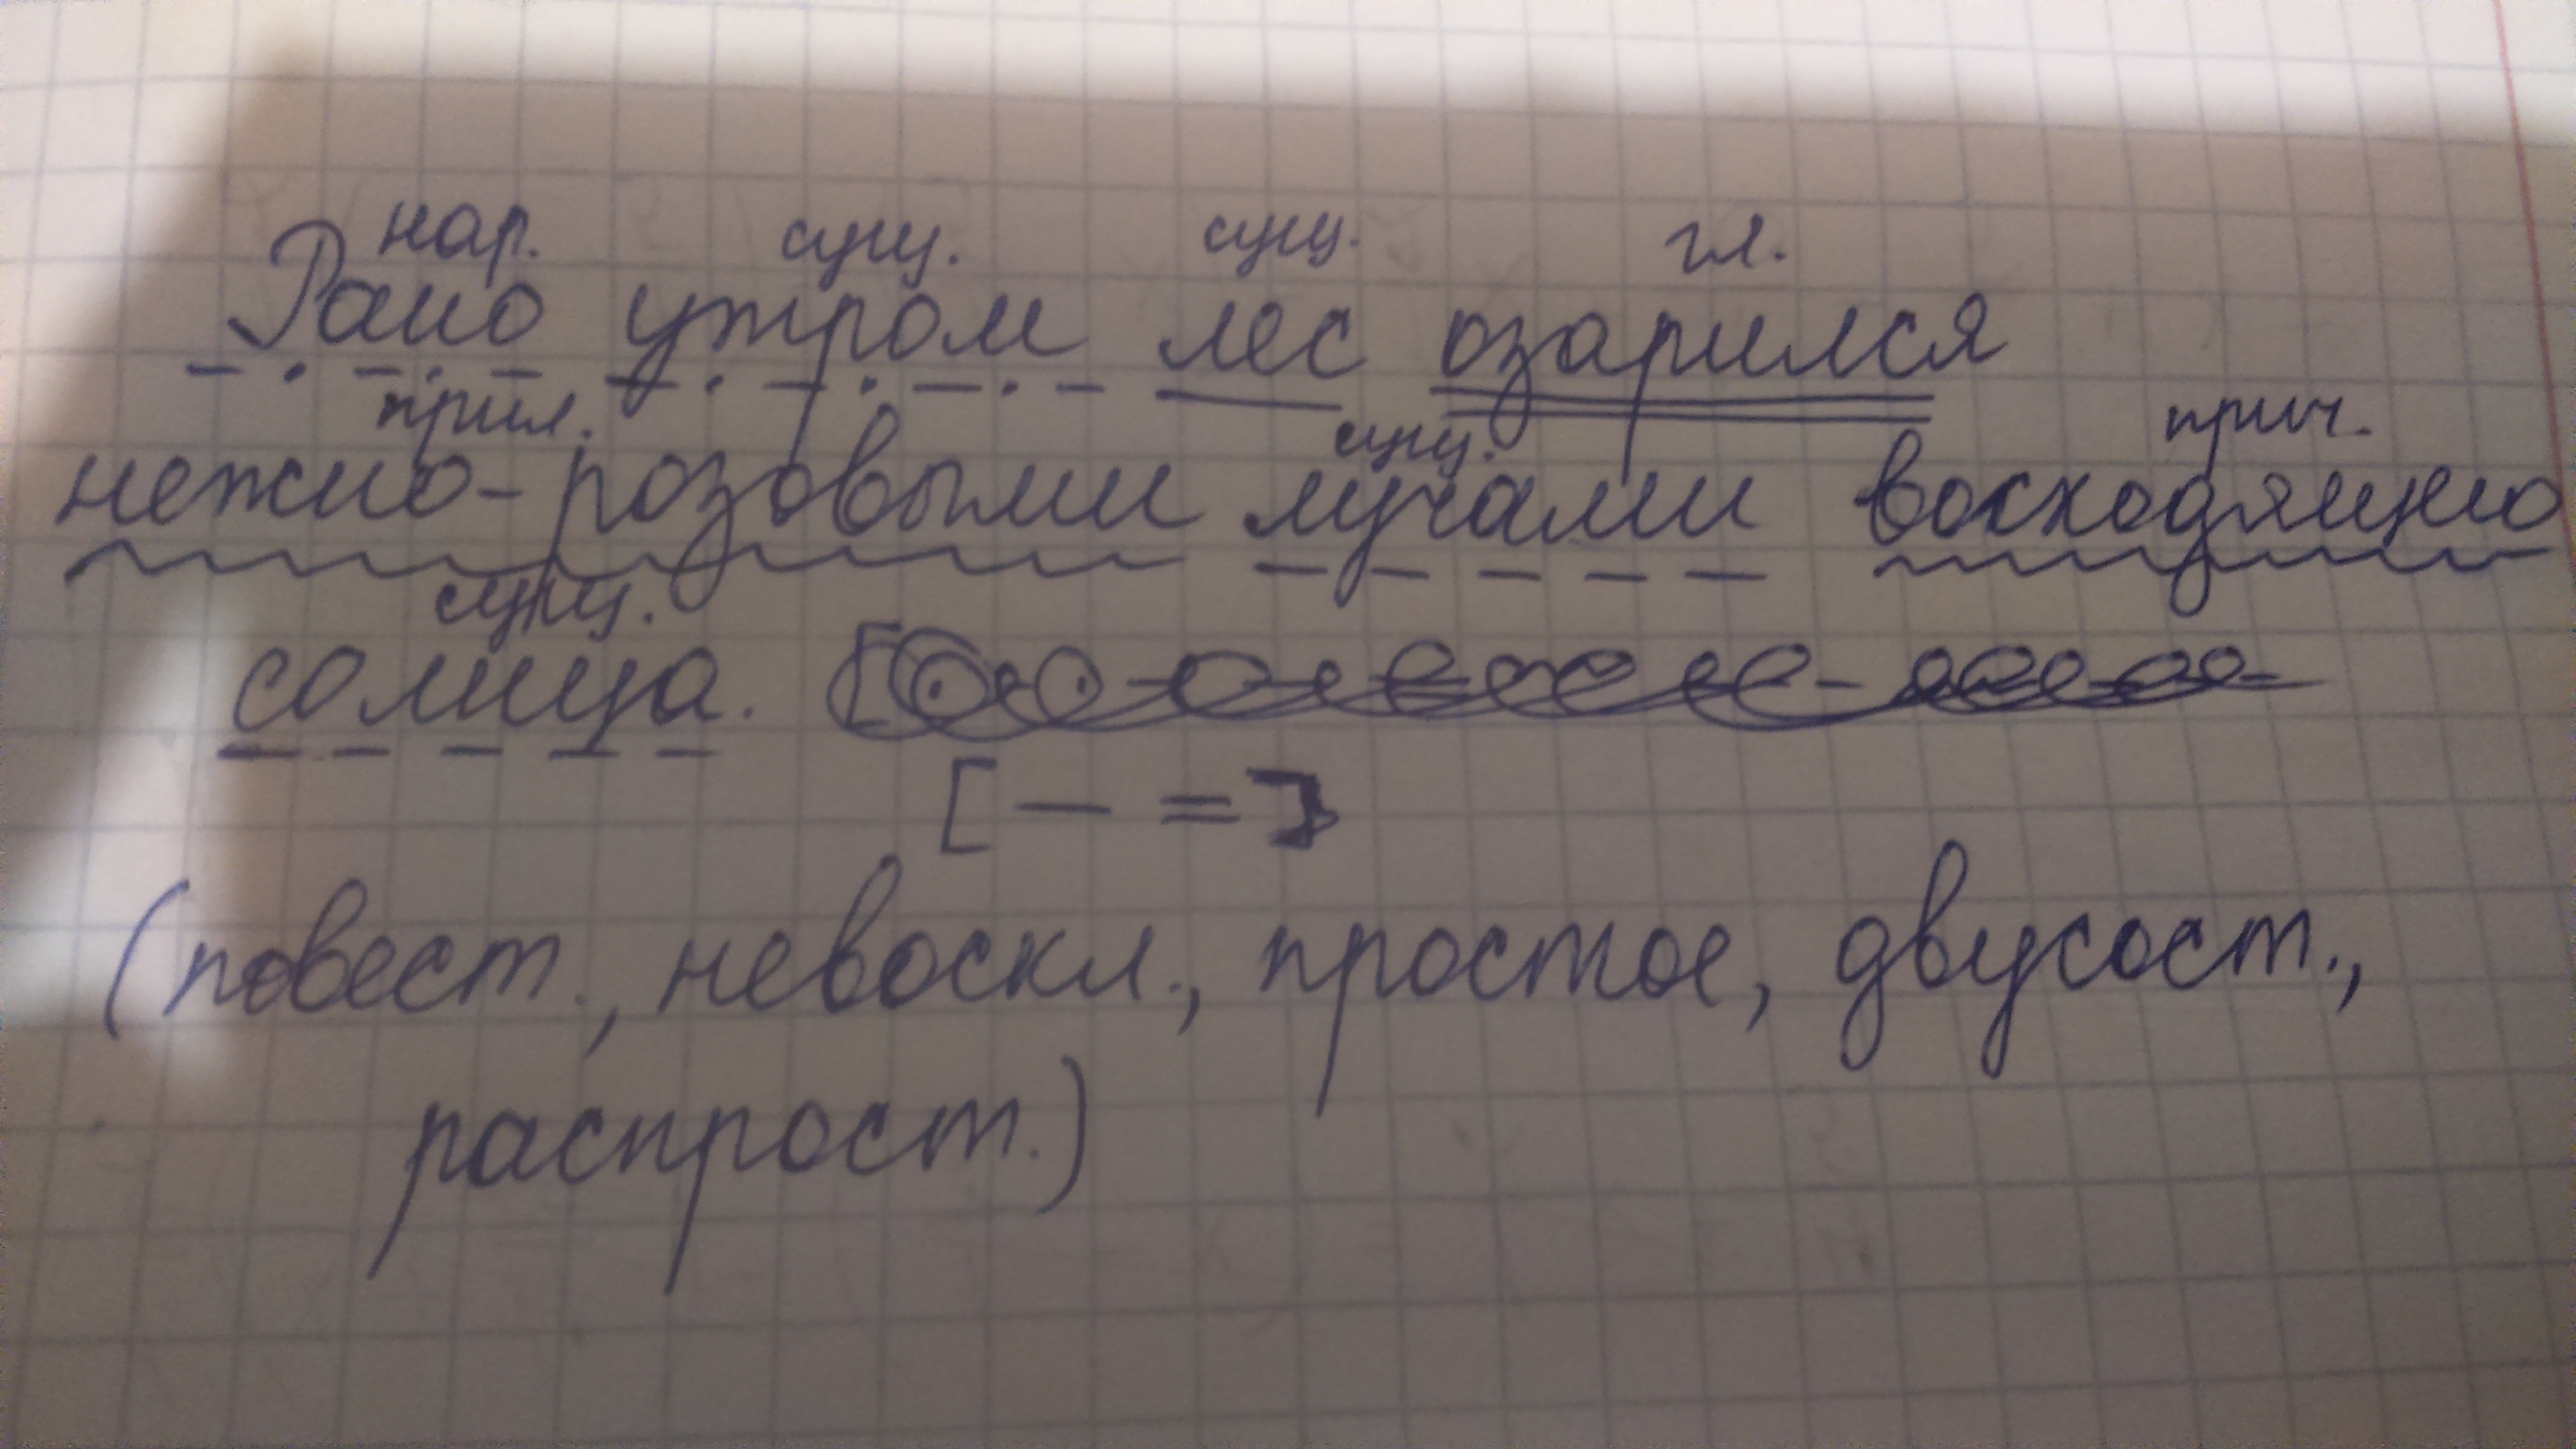 нар. сущ. сущ. гл.
Рано утром лес озарился
прил. сущ. прич.
нежно-розовыми лучами восходящего
сущ.
солнца.
[— =]
(повест., невоскл., простое, двусост.,
распрост.)